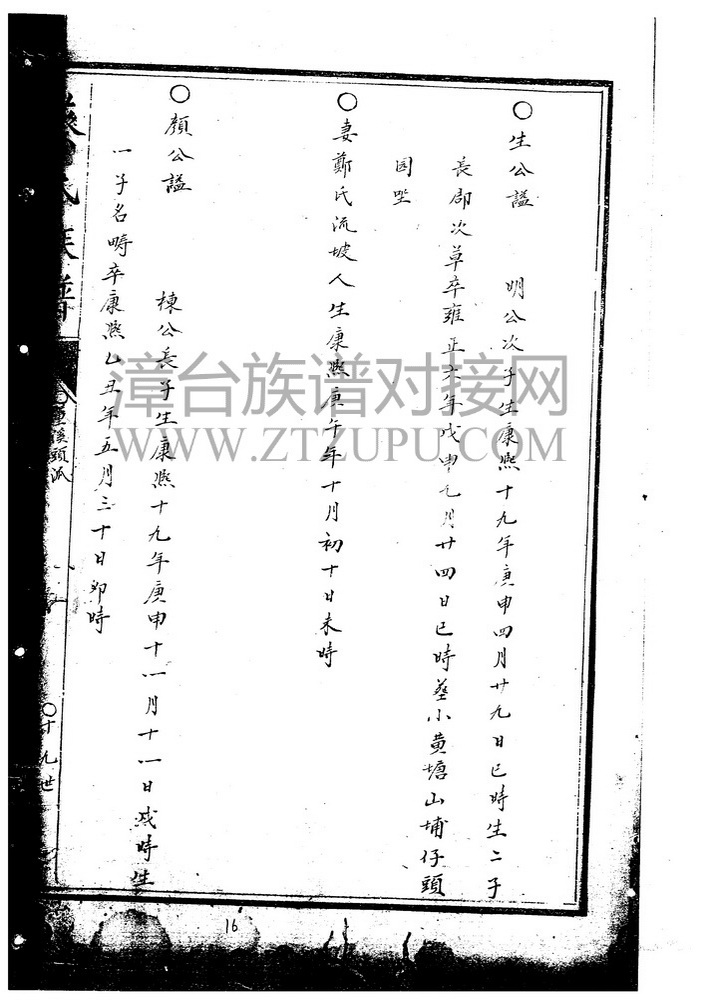 ○生公諡 明公次子生康熙十九年庚申四月廿九日巳時生二子
長郡次草卒雍正六年戊申七月廿四日巳時葬小黄塘山埔仔頭
园坐
○妻鄭氏流坡人生康熙庚午年十月初十日未時
○顏公諡 棟公長子生康熙十九年庚申十一月十一日戌時生
一子名疇卒康熙乙丑年五月三十日卯時
氏族譜
溪頭派
○十九世
16
漳台族谱对接网
WWW.ZTZUPU.COM